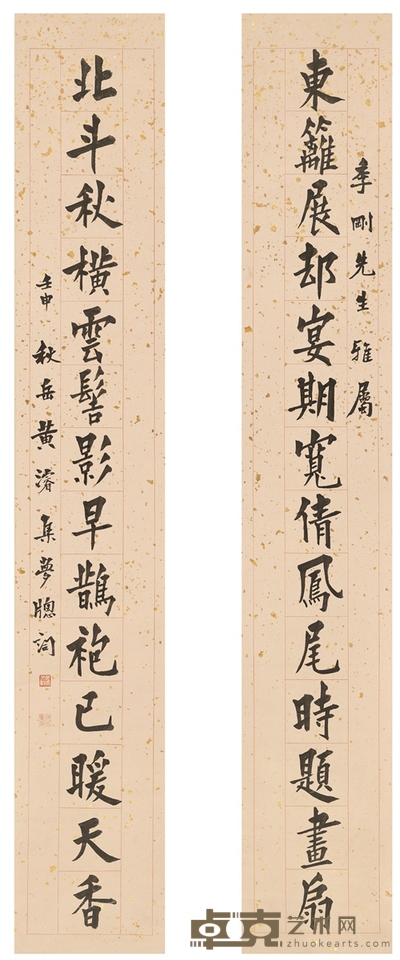 季剛先生雅屬
東籬展却宴期寬倩鳳尾時題畫扇
北斗秋橫雲髻影早鵲袍已暖天香
壬申秋岳黃濬集夢牕詞
卓克艺术网
zhuokearts.com